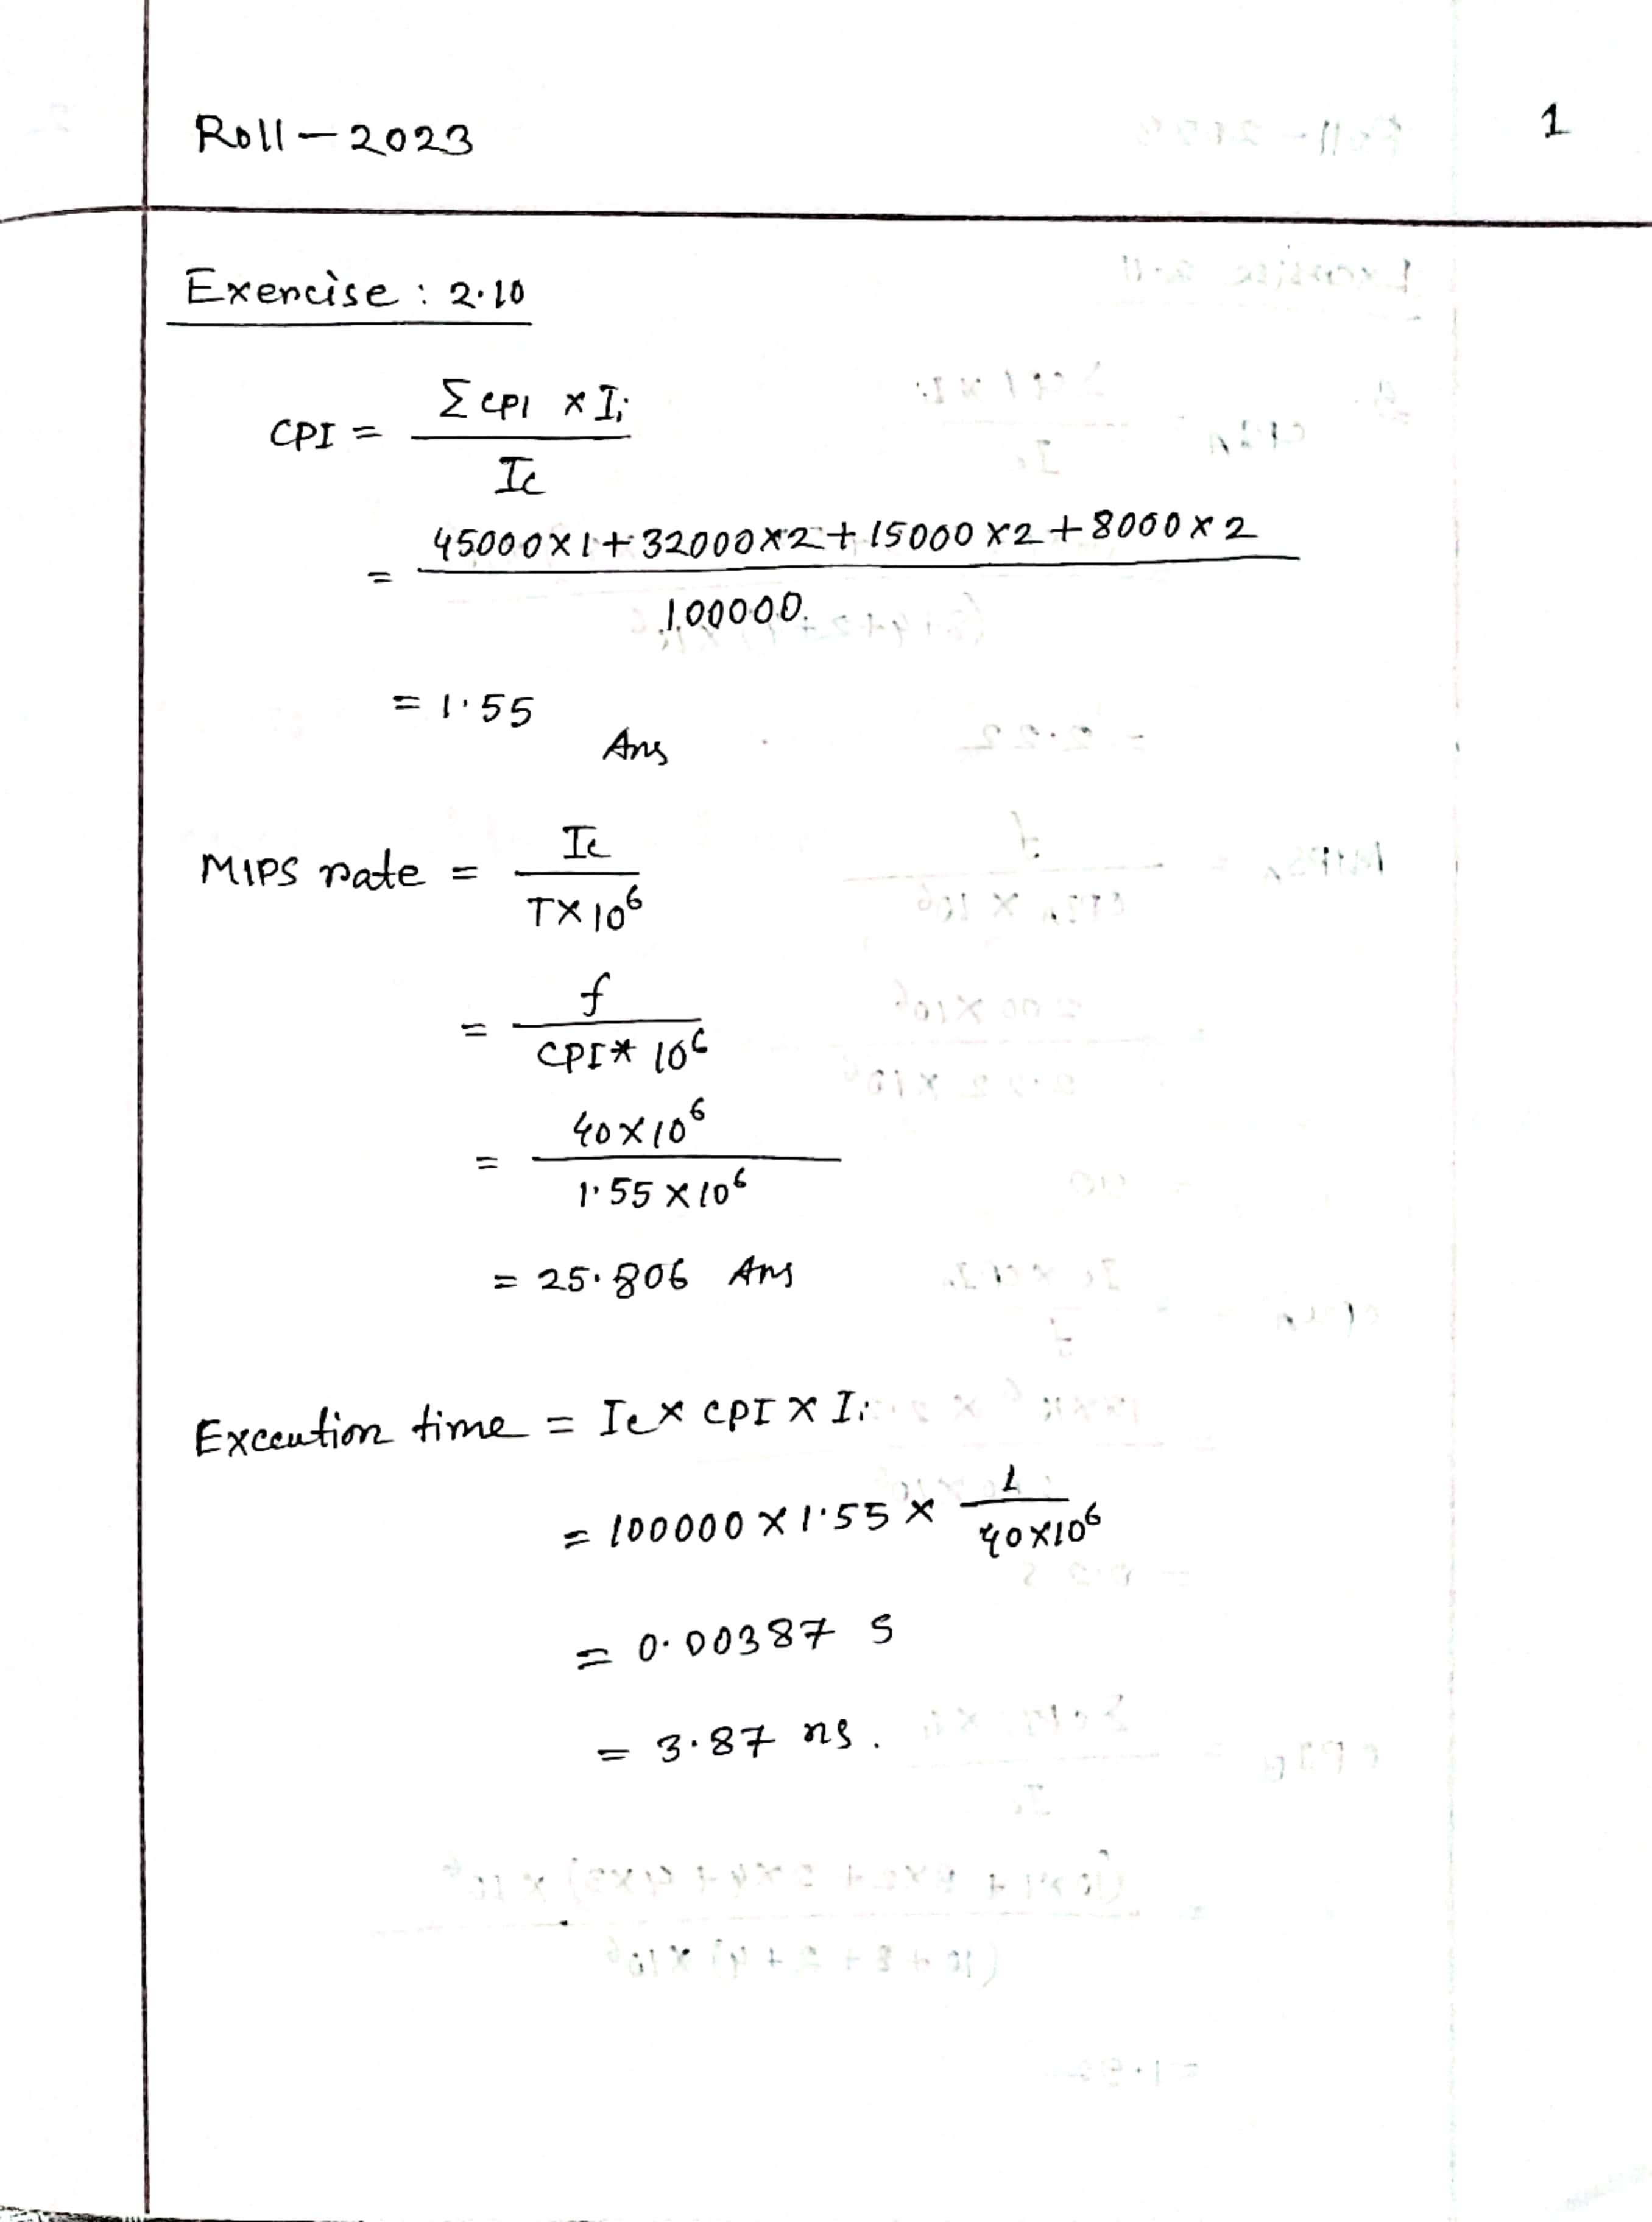 Roll - 2023
1
Exercise : 2.10
CPI = Σ CPI × Ii / Ic
= 45000×1 + 32000×2 + 15000×2 + 8000×2 / 100000
= 1.55
Ans
MIPS rate = Ic / T×10^6
= f / CPI * 10^6
= 40×10^6 / 1.55×10^6
= 25.806 Ans
Execution time = Ic × CPI × Ii
= 100000 × 1.55 × 1 / 40×10^6
= 0.00387 s
= 3.87 ns.